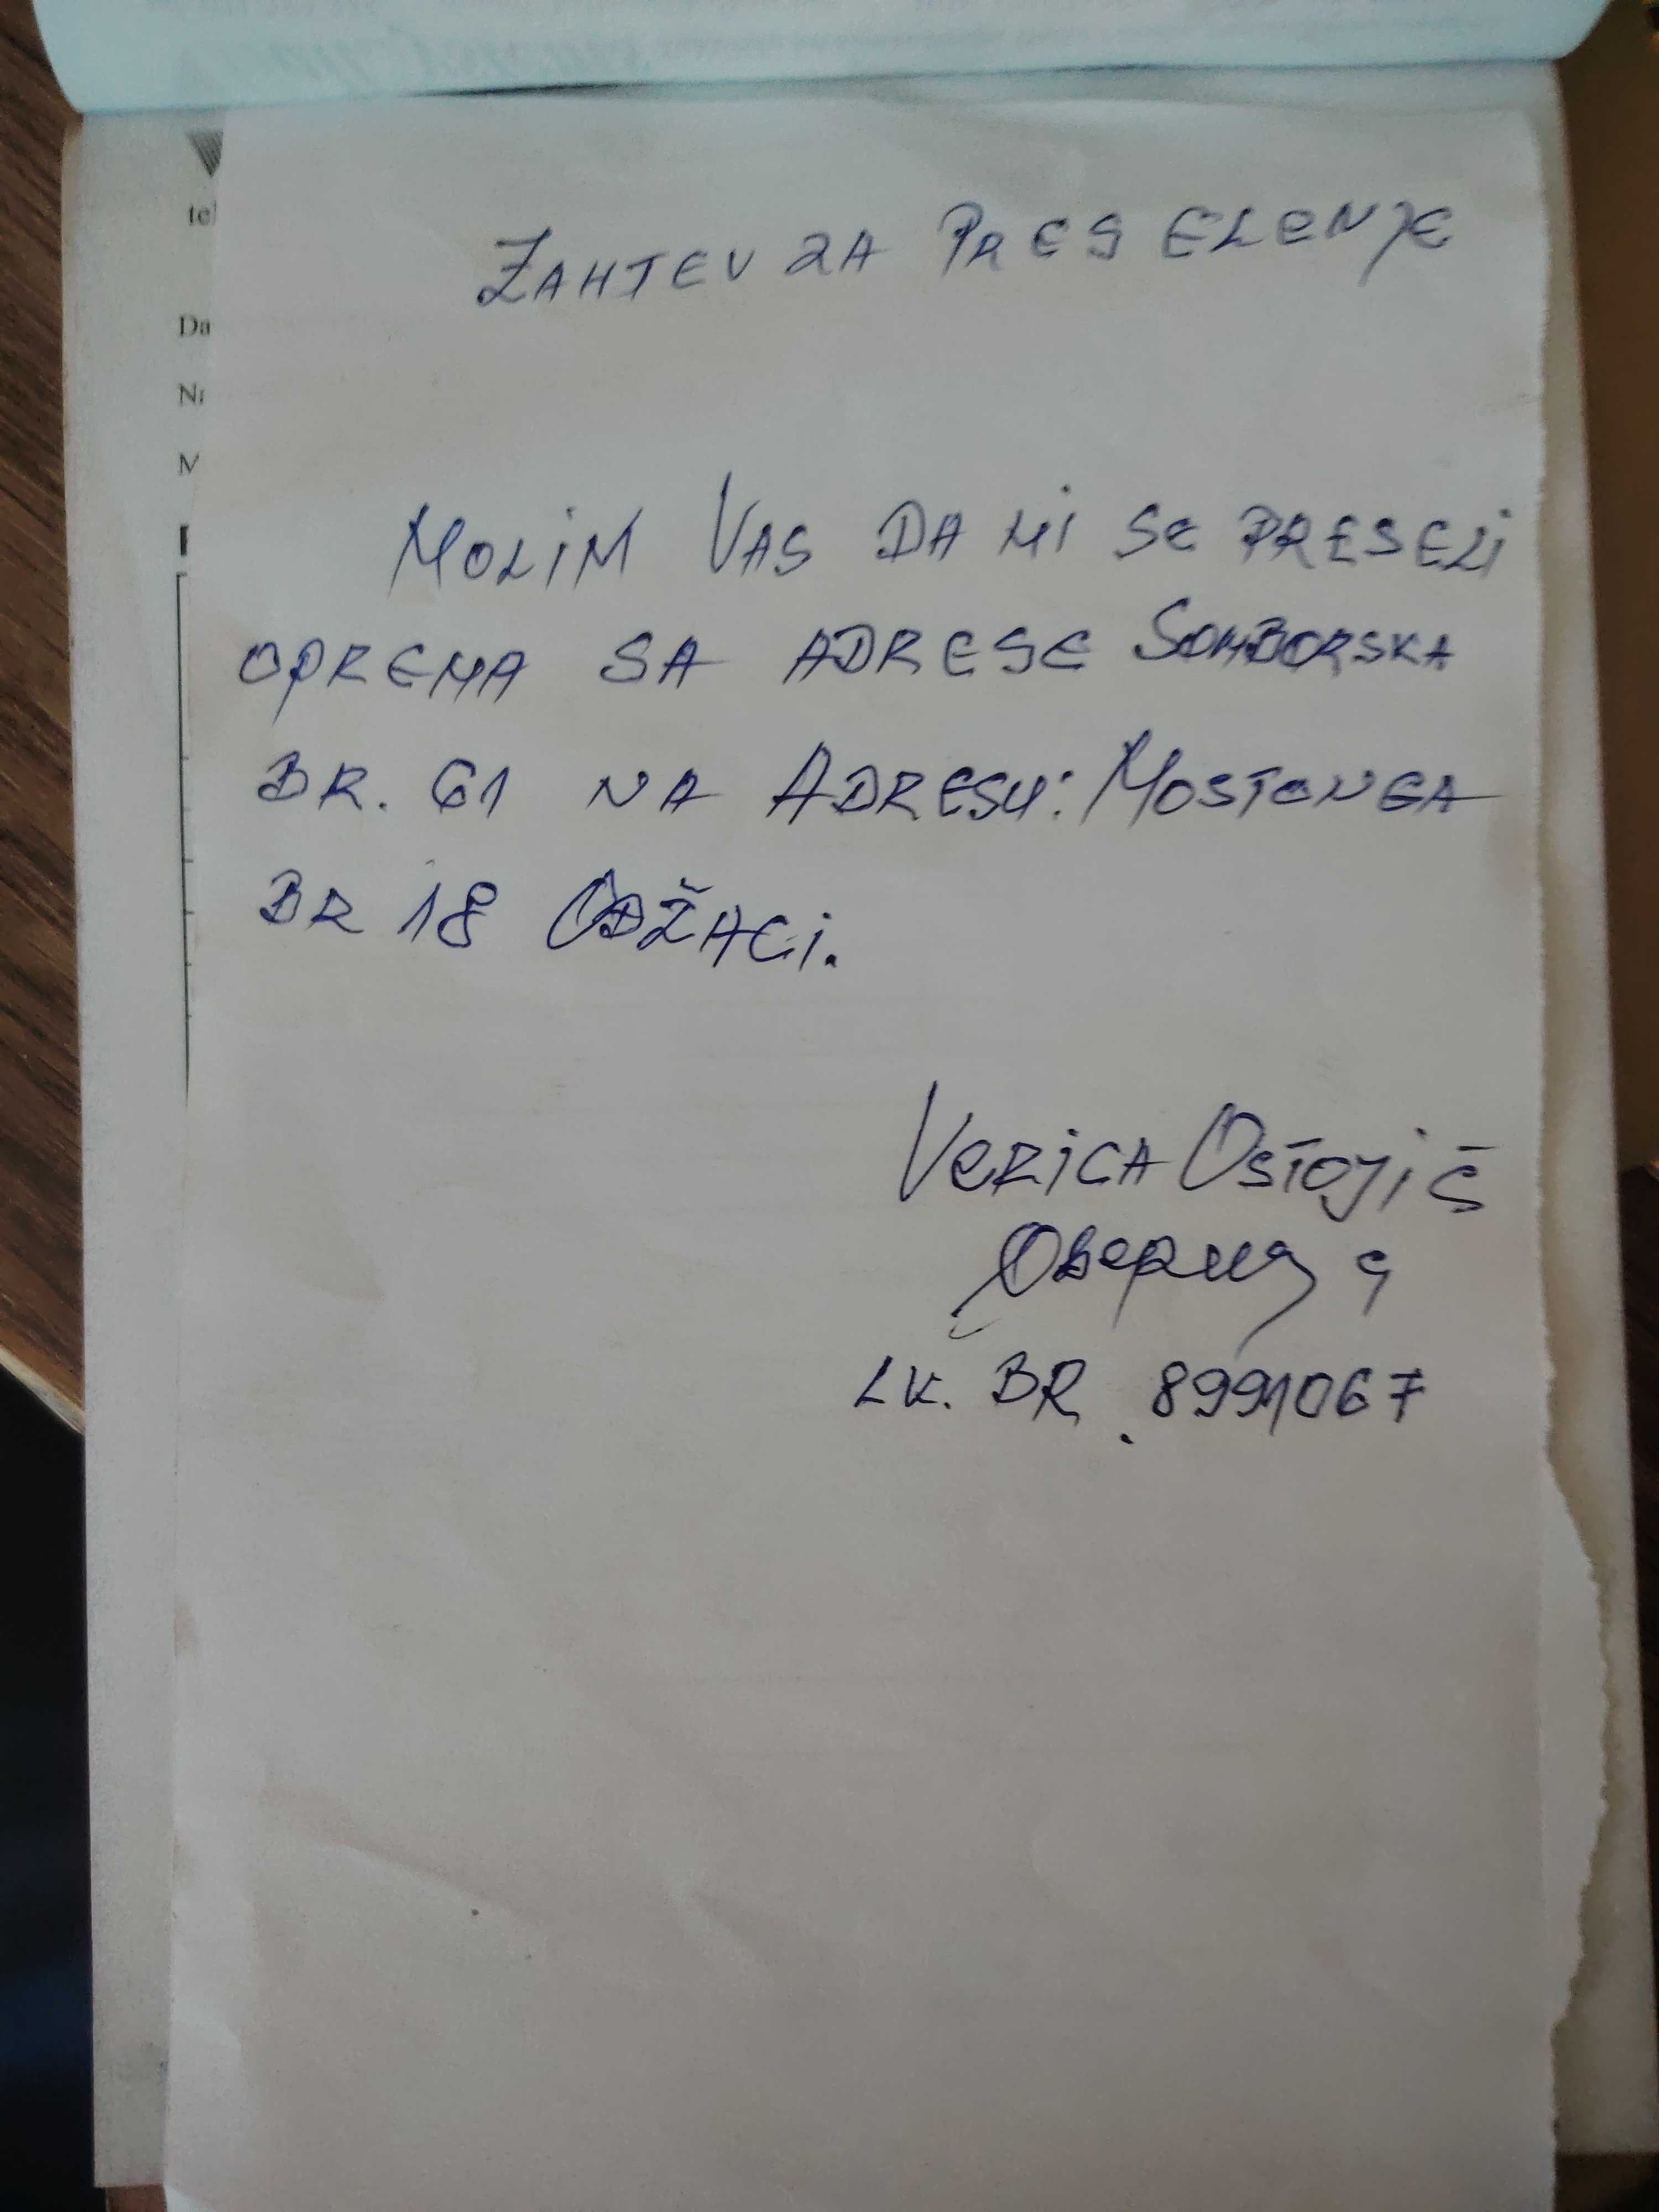 te
Da
M
ZAHTEV ZA PRESELENJE
MOLIM VAS DA MI SE PRESELI
OPREMA SA ADRESE SOMBORSKA
BR. 61 NA ADRESU: MOSTONGA
BR 18 ODŽACI.
VERICA OSTOJIĆ
LK. BR. 8991067